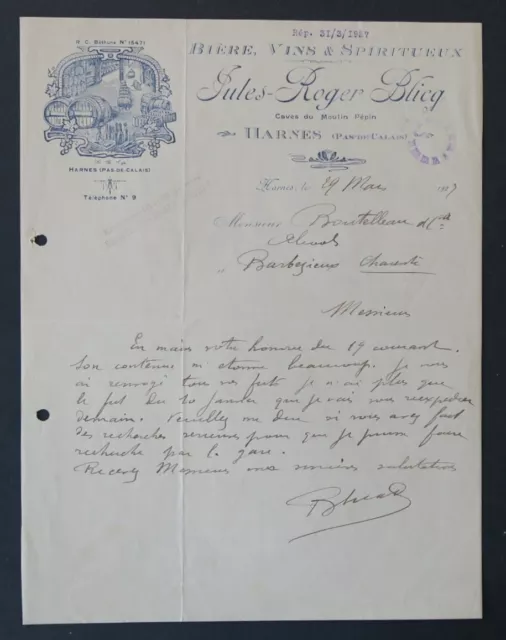 Rép. 31/3/1927
R. C. Béthune Nº 15471
BIÈRE, VINS & SPIRITUEUX
Jules-Roger Blicq
Caves du Moulin Pépin
HARNES (PAS-DE-CALAIS)
HARNES (PAS-DE-CALAIS)
Téléphone Nº 9
Harnes, le 29 Mars 1927
Monsieur Boutelleau & Cie
à Barbezieux Charente
Messieurs
En main votre honorée du 19 courant.
Son contenu m'étonne beaucoup. Je vous
ai renvoyé tous vos futs je n'ai plus que
le fut du 10 Janvier que je vais vous reexpedier
demain. Veuillez me dire si vous avez fait
des recherches serieuses pour que je puisse faire
recherche par la gare.
Recevez Messieurs mes sincères salutations